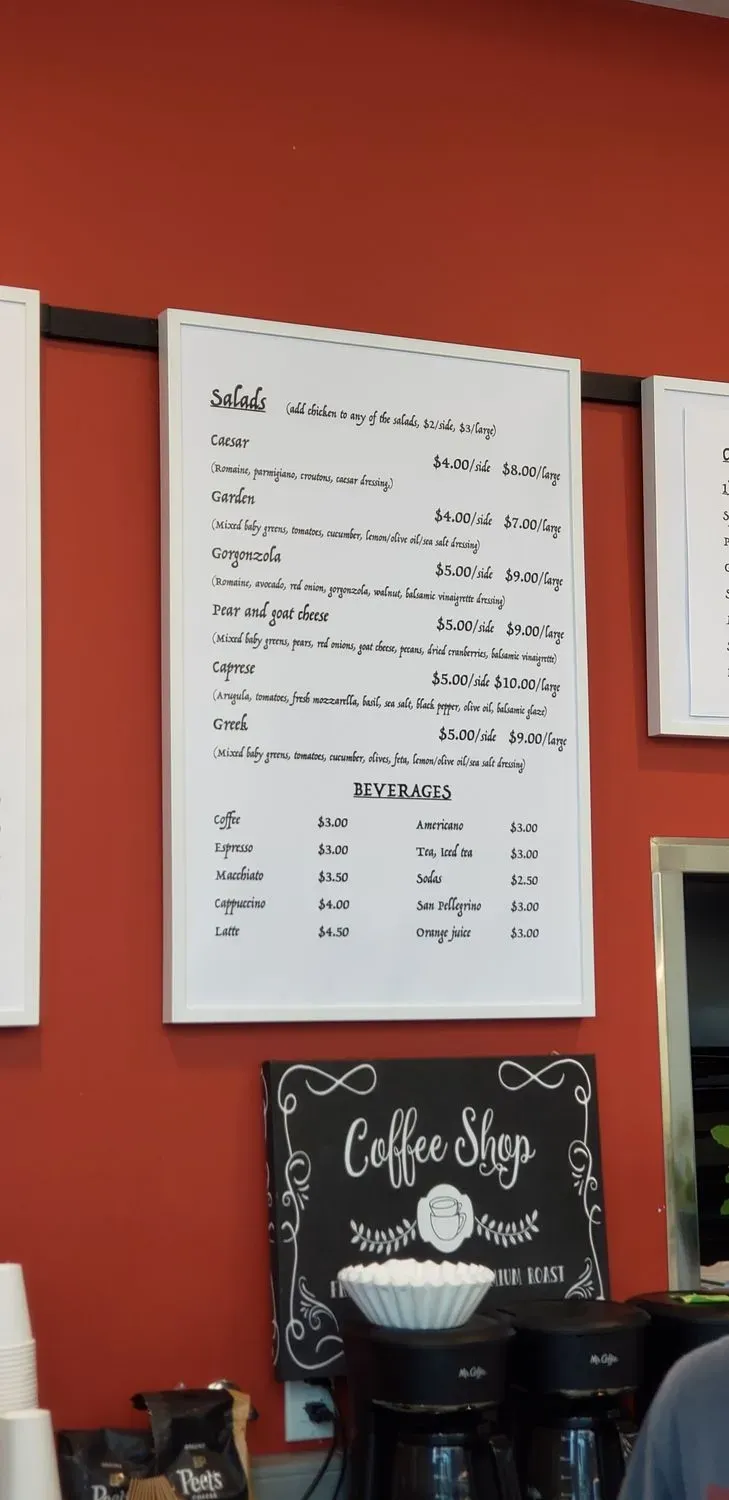 Salads (add chicken to any of the salads, $2/side, $3/large)
Caesar
$4.00/side $8.00/large
(Romaine, parmigiano, croutons, caesar dressing,)
Garden
$4.00/side $7.00/large
(Mixed baby greens, tomatoes, cucumber, lemon/olive oil/sea salt dressing)
Gorgonzola
$5.00/side $9.00/large
(Romaine, avocado, red onion, gorgonzola, walnut, balsamic vinaigrette dressing)
Pear and goat cheese $5.00/side $9.00/large
(Mixed baby greens, pears, red onions, goat cheese, pecans, dried cranberries, balsamic vinaigrette)
Caprese
$5.00/side $10.00/large
(Arugula, tomatoes, fresh mozzarella, basil, sea salt, black pepper, olive oil, balsamic glaze)
Greek
$5.00/side $9.00/large
(Mixed baby greens, tomatoes, cucumber, olives, feta, lemon/olive oil/sea salt dressing)
BEVERAGES
Coffee $3.00 Americano $3.00
Espresso $3.00 Tea, Iced tea $3.00
Macchiato $3.50 Sodas $2.50
Cappuccino $4.00 San Pellegrino $3.00
Latte $4.50 Orange juice $3.00
Coffee Shop
ROAST
Mr. Coffee
Mr. Coffee
Peet's
COFFEE